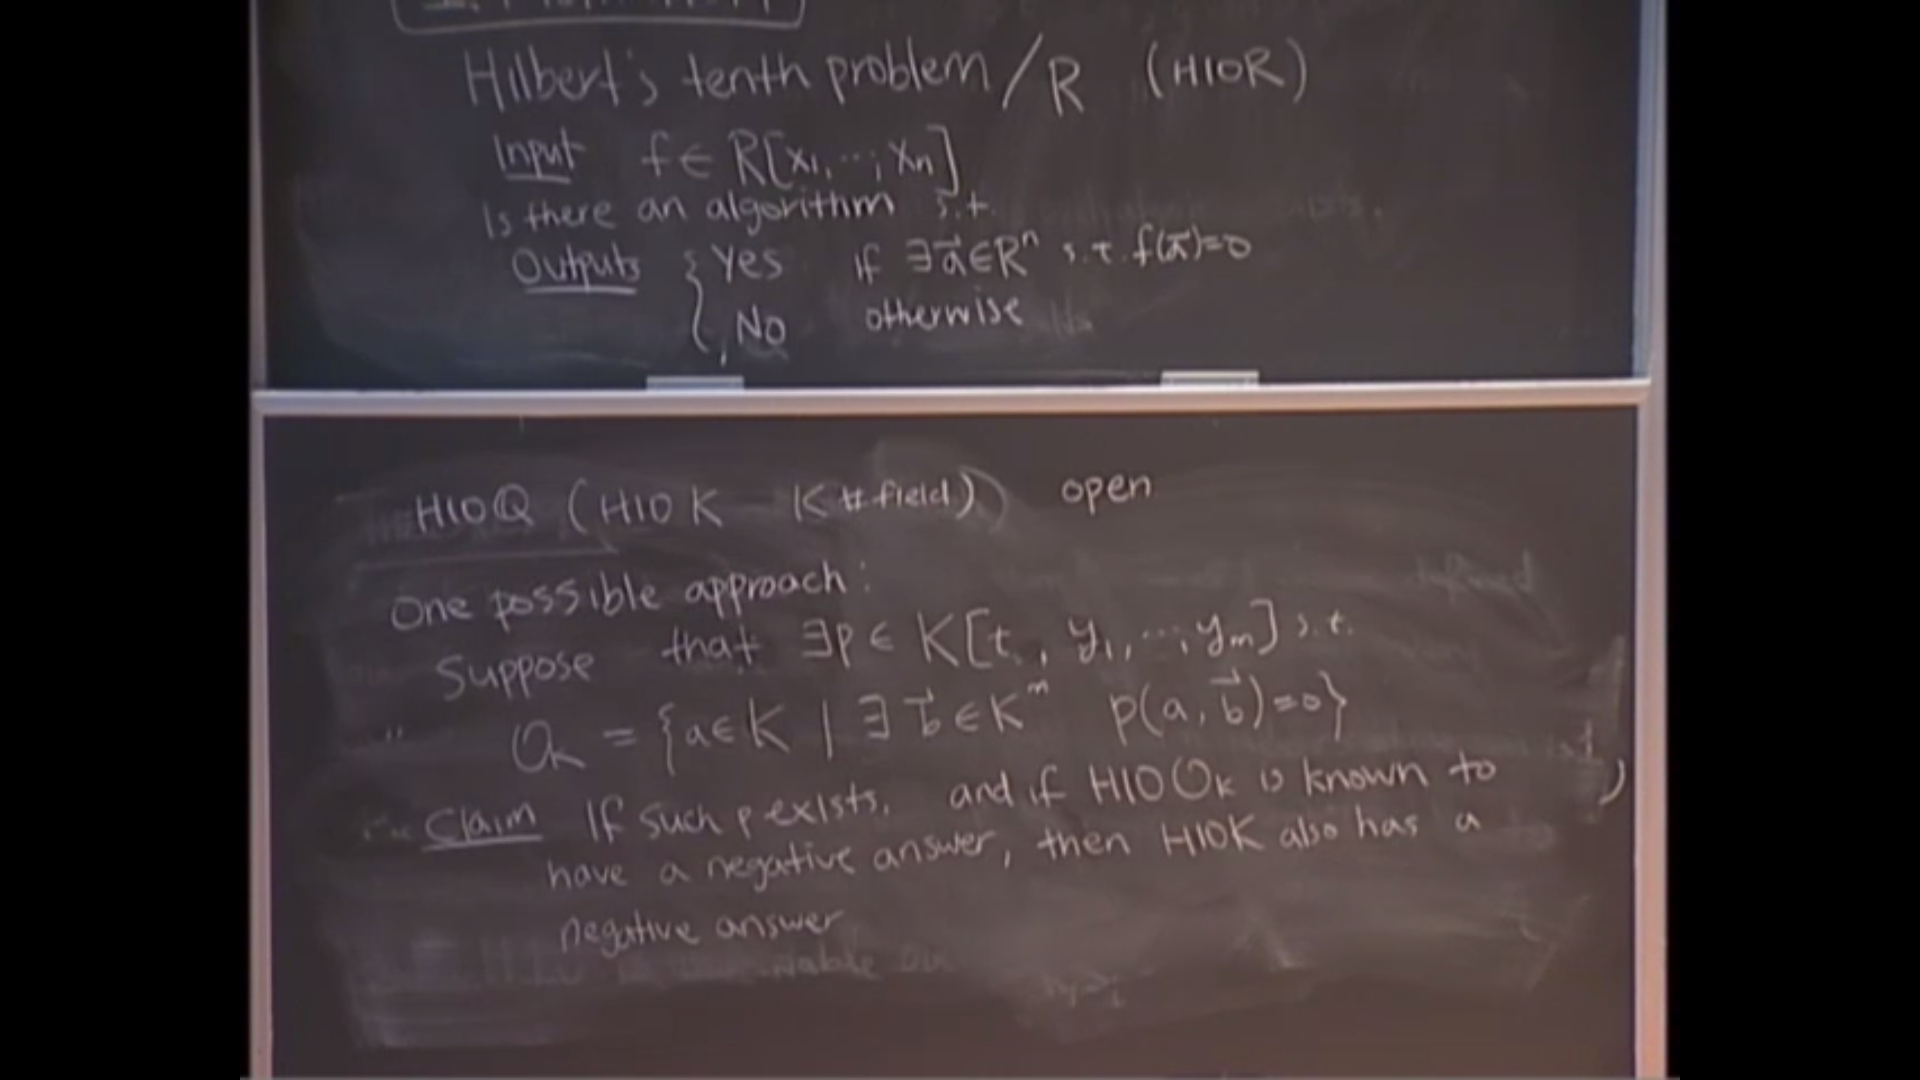 Hilbert's tenth problem / R (H10R)
Input f ∈ R[x₁, ..., xₙ]
Is there an algorithm s.t.
Outputs { Yes if ∃a⃗∈Rⁿ s.t. f(a⃗)=0
No otherwise
H10Q (H10K K #field) open
One possible approach:
Suppose that ∃p ∈ K[t, y₁, ..., yₘ] s.t.
O_K = {a∈K | ∃ b⃗∈Kᵐ p(a, b⃗)=0}
Claim If such p exists, and if H10 O_K is known to
have a negative answer, then H10K also has a
negative answer